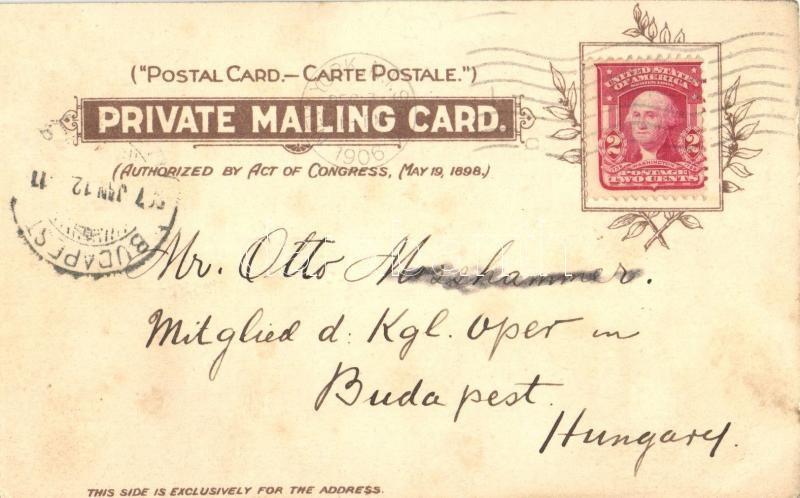 ("Postal Card.—Carte Postale.")
YORK, N.
1906
PRIVATE MAILING CARD.
(Authorized by Act of Congress, May 19, 1898.)
UNITED STATES
OF AMERICA
2 2
WASHINGTON
POSTAGE
TWO CENTS
BUDAPEST
907 JAN 12
11
Mr. Otto
Mitglied d. Kgl. Oper in
Budapest.
Hungary.
THIS SIDE IS EXCLUSIVELY FOR THE ADDRESS.